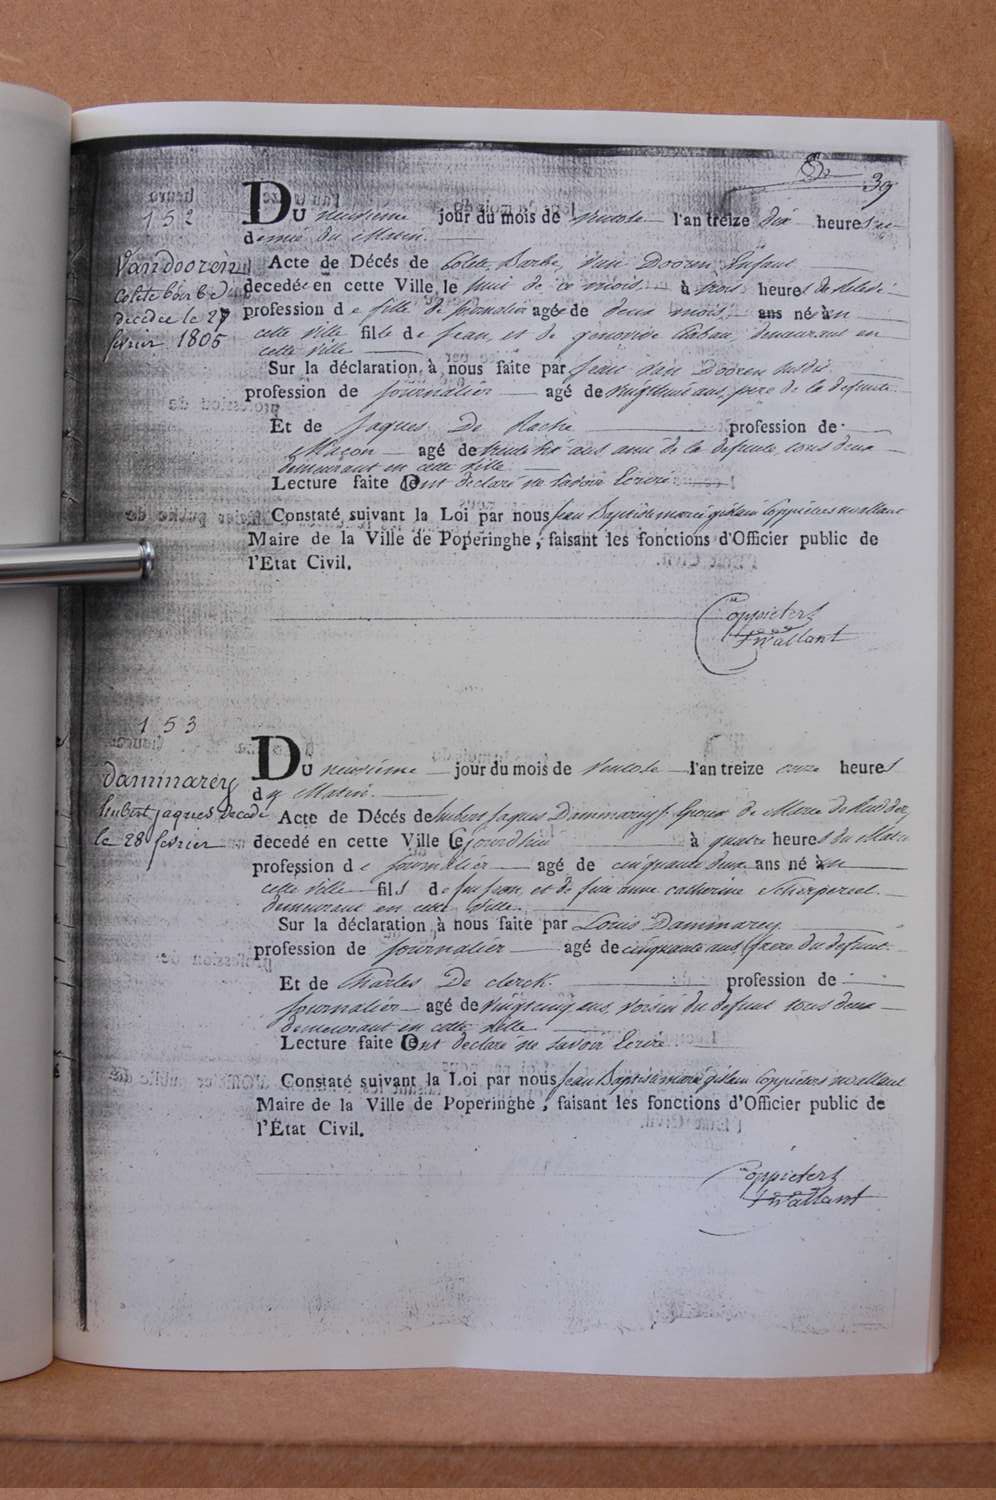 39
152
DU neuvième jour du mois de ventose l'an treize dix heures et
demie du Matin.
Vandooren
Colete barbe
decedee le 27
fevrier 1805
Acte de Décés de Colete Barbe, Van Dooren Enfant
decedée en cette Ville le huit de ce mois à trois heures de relevé
profession de fille de journalier agée de deux mois, ans né en
cette ville fille de Jean, et de genovive demeurant en
cette ville
Sur la déclaration à nous faite par Jean Van Dooren susdit
profession de journalier agé de ans, père de la defunte.
Et de Jaques De Rache profession de
Maçon agé de trente six ans ami de la defunte, tous deux
demeurant en cette ville
Lecture faite Ont declaré ne savoir Ecrire
Constaté suivant la Loi par nous Jean Baptiste marie gislein Coppieters twallant
Maire de la Ville de Poperinghe, faisant les fonctions d'Officier public de
l'Etat Civil.
Coppieters
twallant
153
DU neuvième jour du mois de Ventose l'an treize onze heures
du Matin.
Dammarey
hubert jaques decede
le 28 fevrier
Acte de Décés de hubert Jaques Dammarey Epoux de Marie
decedé en cette Ville Cejourdhui à quatre heures du Matin
profession de journalier agé de cinquante deux ans né en
cette ville fils de feu jean, et de feue anne catherine Scherpereel.
demeurant en cette Ville.
Sur la déclaration à nous faite par Louis Dammarey
profession de journalier agé de cinquante ans, frere du defunt.
Et de Charles De clerck. profession de
journalier agé de vingtcinq ans, voisin du defunt tous deux
demeurant en cette ville
Lecture faite Ont declaré ne savoir Ecrire
Constaté suivant la Loi par nous Jean Baptiste marie gislein Coppieters twallant
Maire de la Ville de Poperinghe, faisant les fonctions d'Officier public de
l'État Civil.
Coppieters
twallant